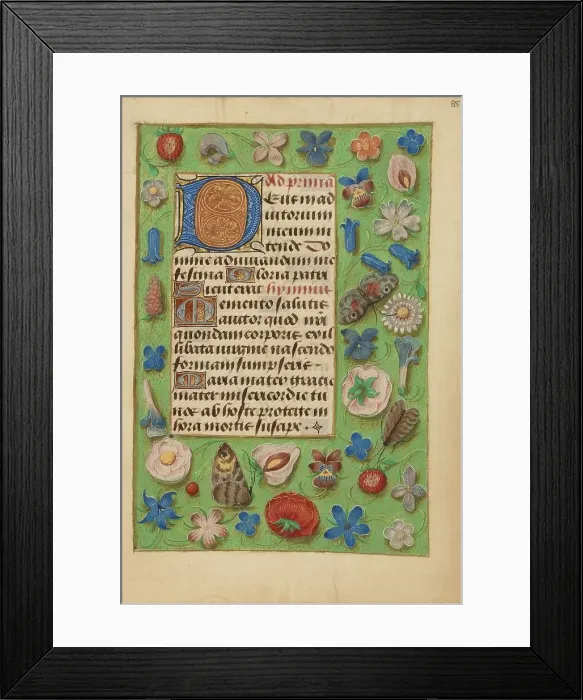 Ad prima
Deus in ad
iutorium
meum in
tende Do
mine ad iuuandum me
festina Gloria patri
Sicut erat hymnus
Memento salutis
auctor quod nri
quondam corporis ex il
libata uirgine nascendo
formam sumpseris
Maria mater gracie
mater misericordie tu
nos ab hoste protege in
hora mortis suscipe